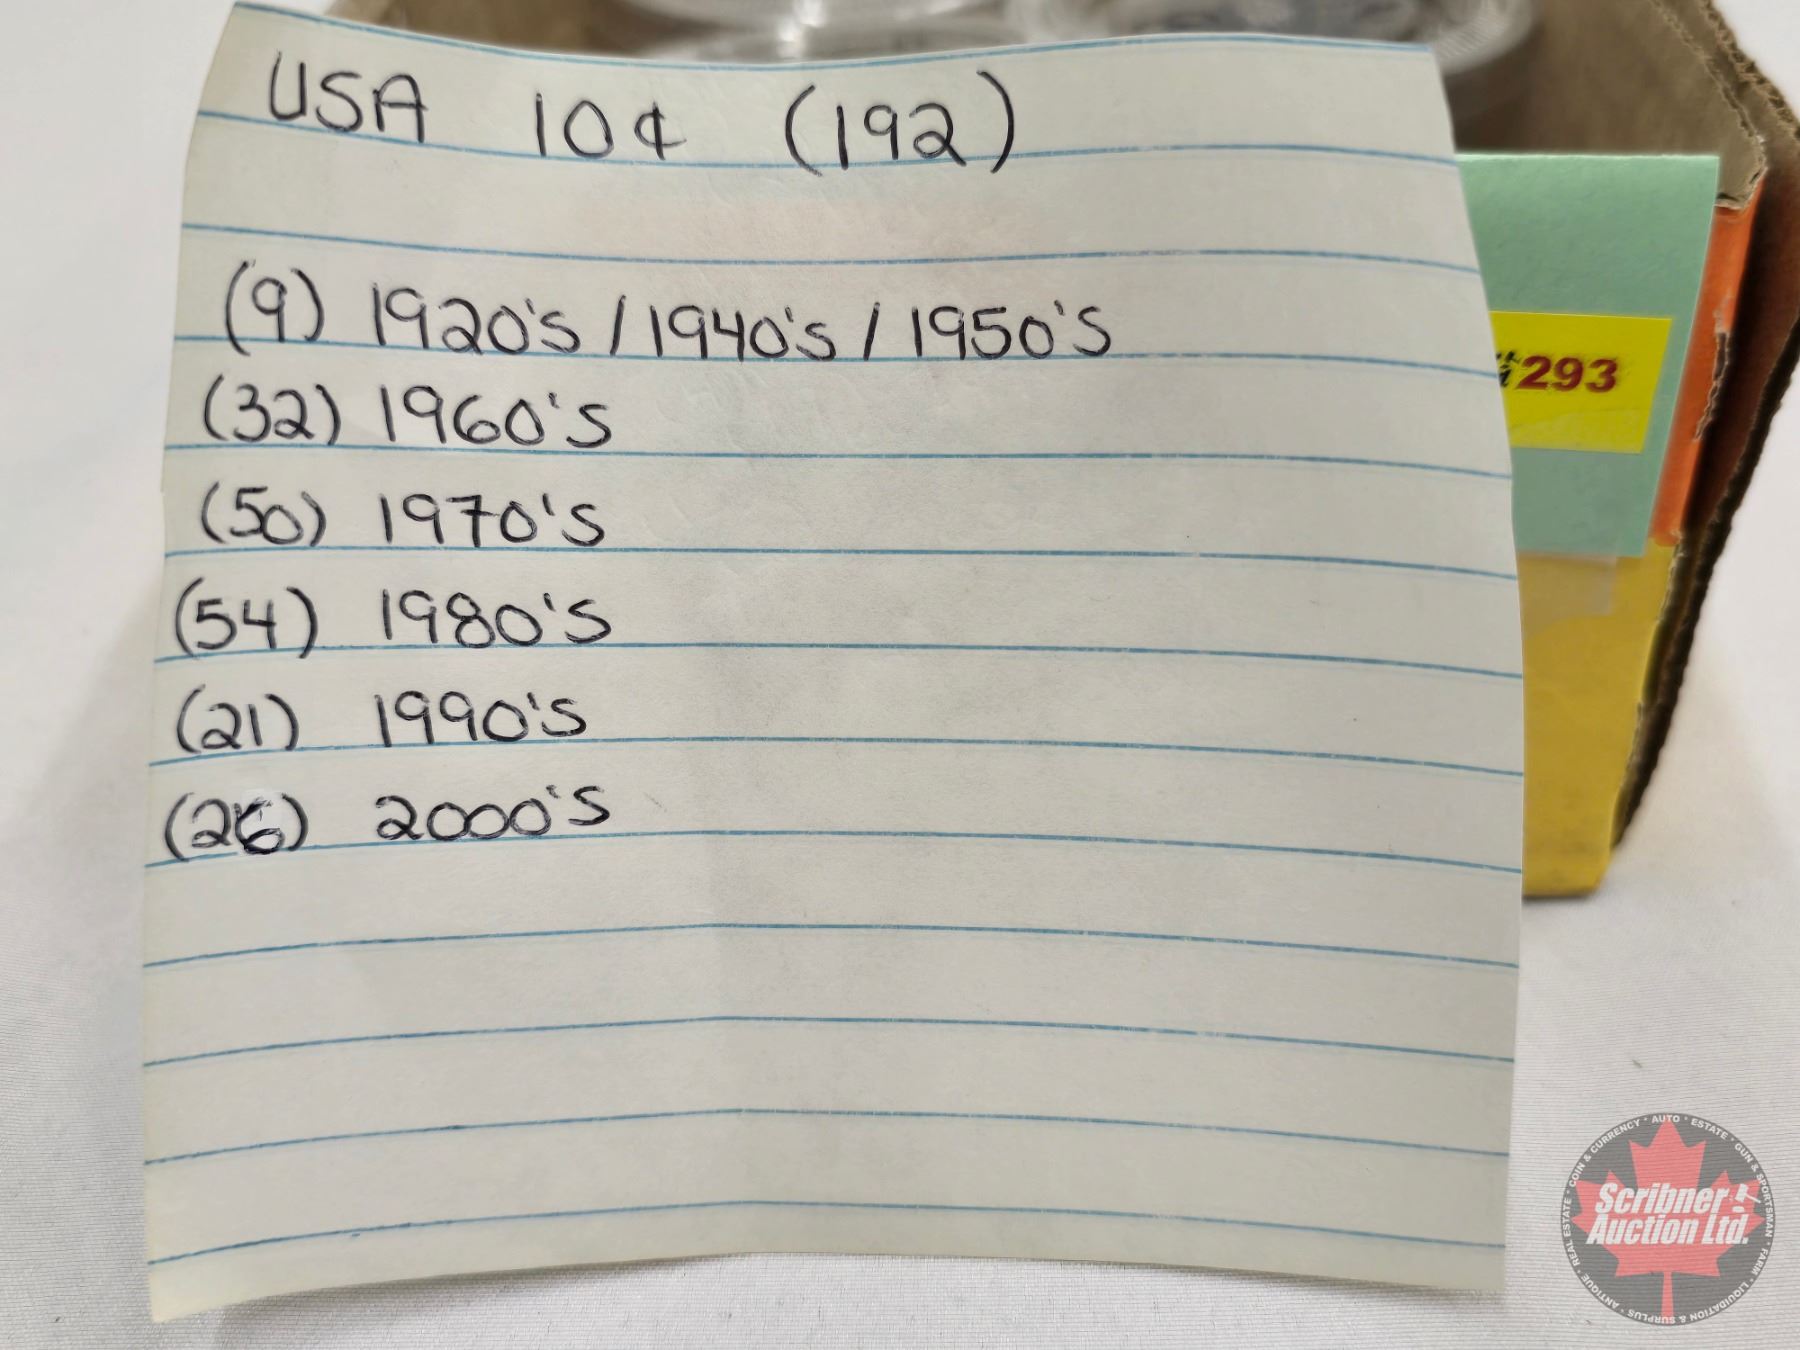 USA 10¢ (192)
(9) 1920's / 1940's / 1950's
(32) 1960's
(50) 1970's
(54) 1980's
(21) 1990's
(26) 2000's
293
COIN & CURRENCY · AUTO · ESTATE · GUN & SPORTSMAN · FARM · LIQUIDATION & SURPLUS · ANTIQUE · REAL ESTATE ·
Scribner
Auction Ltd.